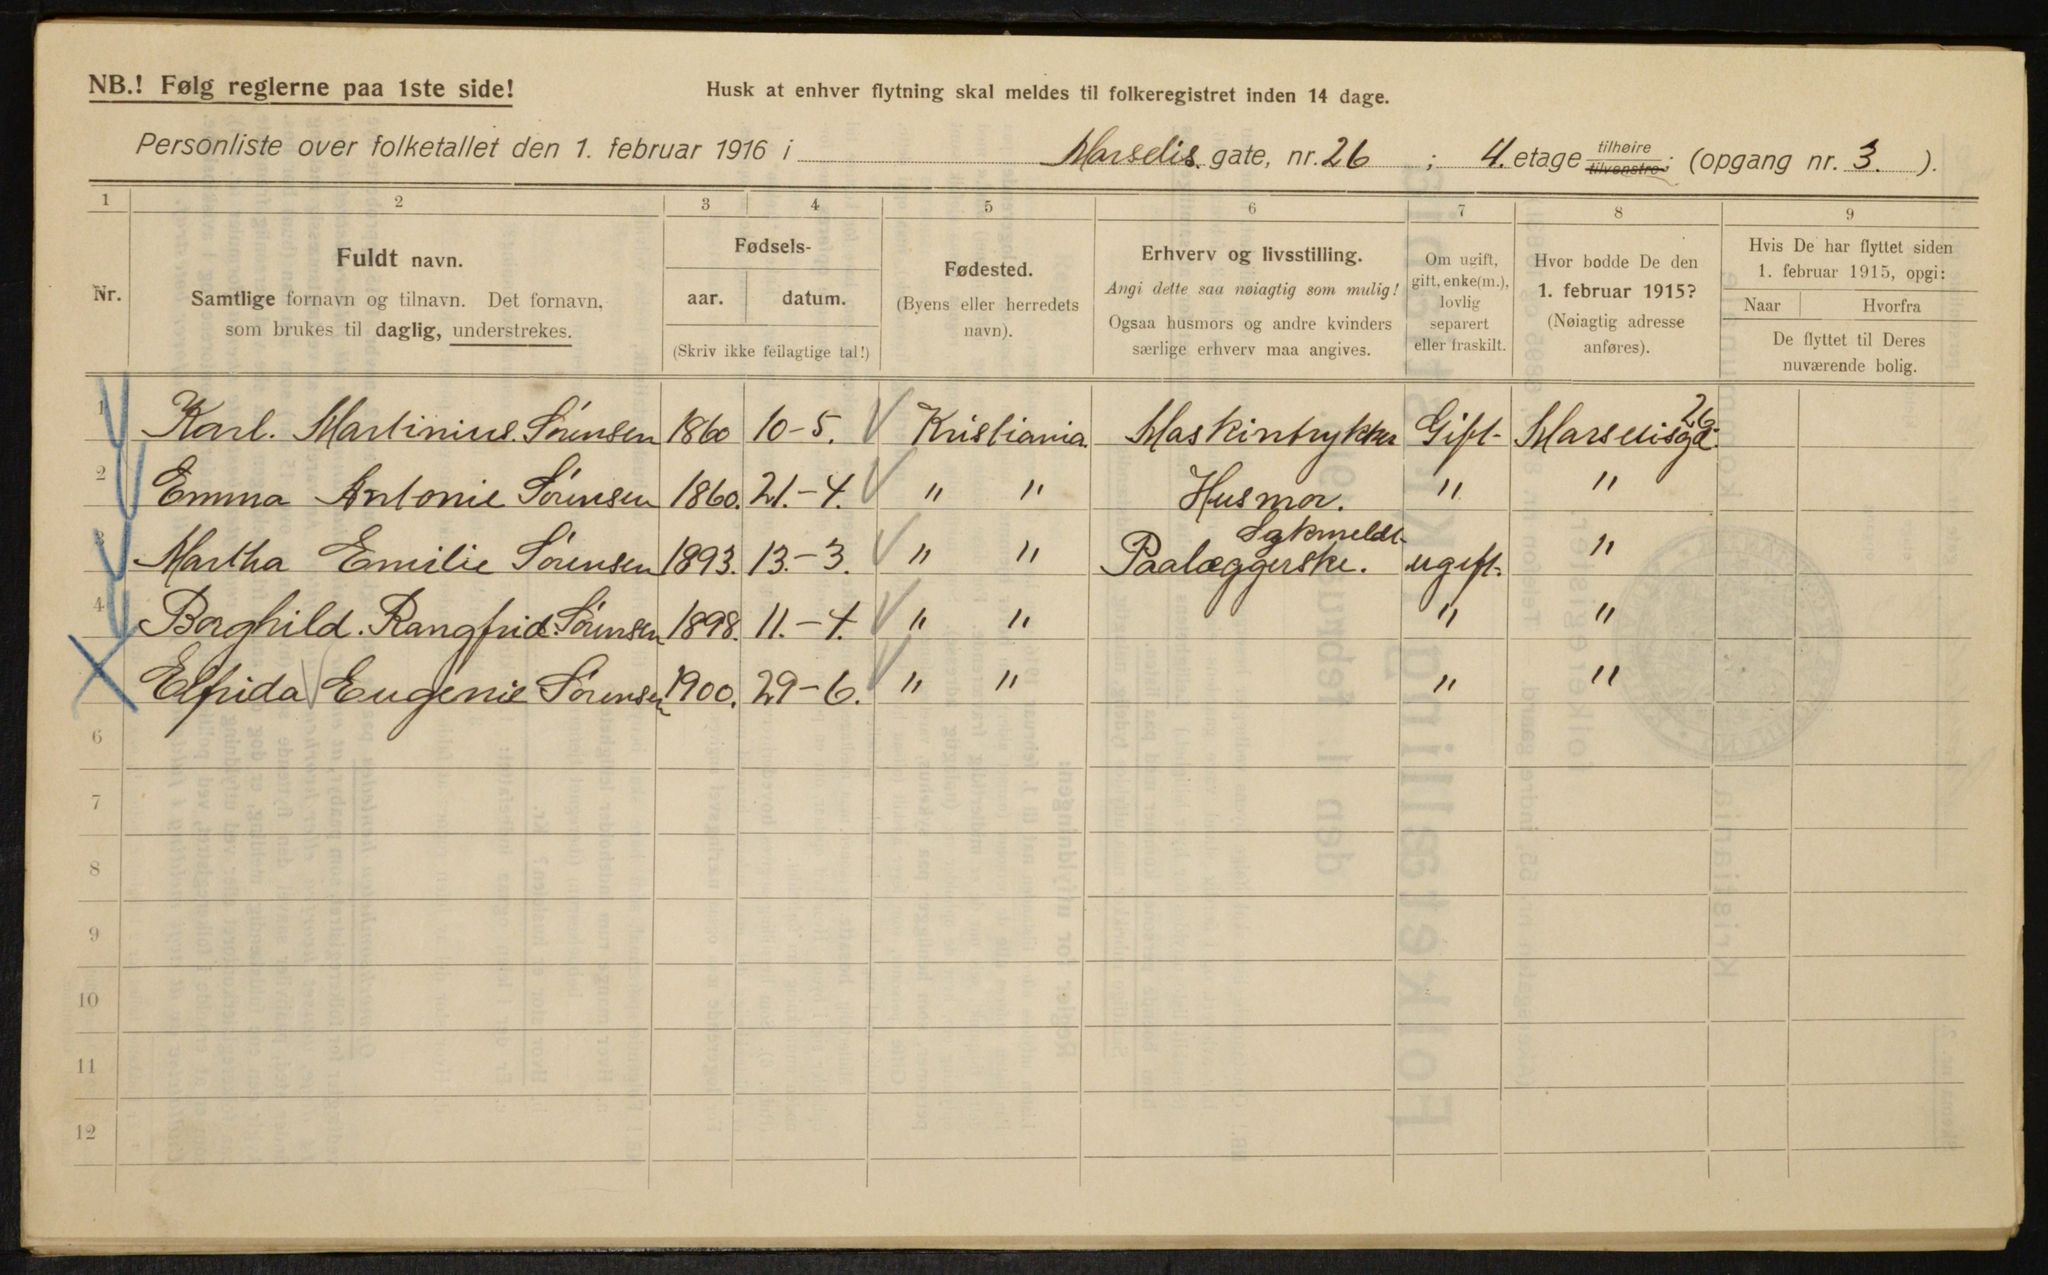 NB.! Følg reglerne paa 1ste side!
Husk at enhver flytning skal meldes til folkeregistret inden 14 dage.
Personliste over folketallet den 1. februar 1916 i Marselis gate, nr. 26 ; 4. etage tilhøire tilvenstre; (opgang nr. 3. ).
1 2 3 4 5 6 7 8 9
Nr.
Fuldt navn.
Samtlige fornavn og tilnavn. Det fornavn,
som brukes til daglig, understrekes.
Fødsels-
aar. datum.
(Skriv ikke feilagtige tal!)
Fødested.
(Byens eller herredets
navn).
Erhverv og livsstilling.
Angi dette saa nøiagtig som mulig!
Ogsaa husmors og andre kvinders
særlige erhverv maa angives.
Om ugift,
gift, enke(m.),
lovlig
separert
eller fraskilt.
Hvor bodde De den
1. februar 1915?
(Nøiagtig adresse
anføres).
Hvis De har flyttet siden
1. februar 1915, opgi:
Naar Hvorfra
De flyttet til Deres
nuværende bolig.
1 Karl. Martinius. Sørensen 1860 10-5. Kristiania. Maskintrykker Gift- Marselisgd. 26
2 Emma Antonie Sørensen 1860. 21.-4. " " Husmor. " "
3 Martha Emilie Sørensen 1893. 13.-3. " " Paalæggerske. Sykmeldt. ugift. "
4 Borghild. Rangfrid. Sørensen 1898. 11.-4. " " " "
Elfrida Eugenie Sørensen 1900. 29-6. " " " "
6
7
8
9
10
11
12